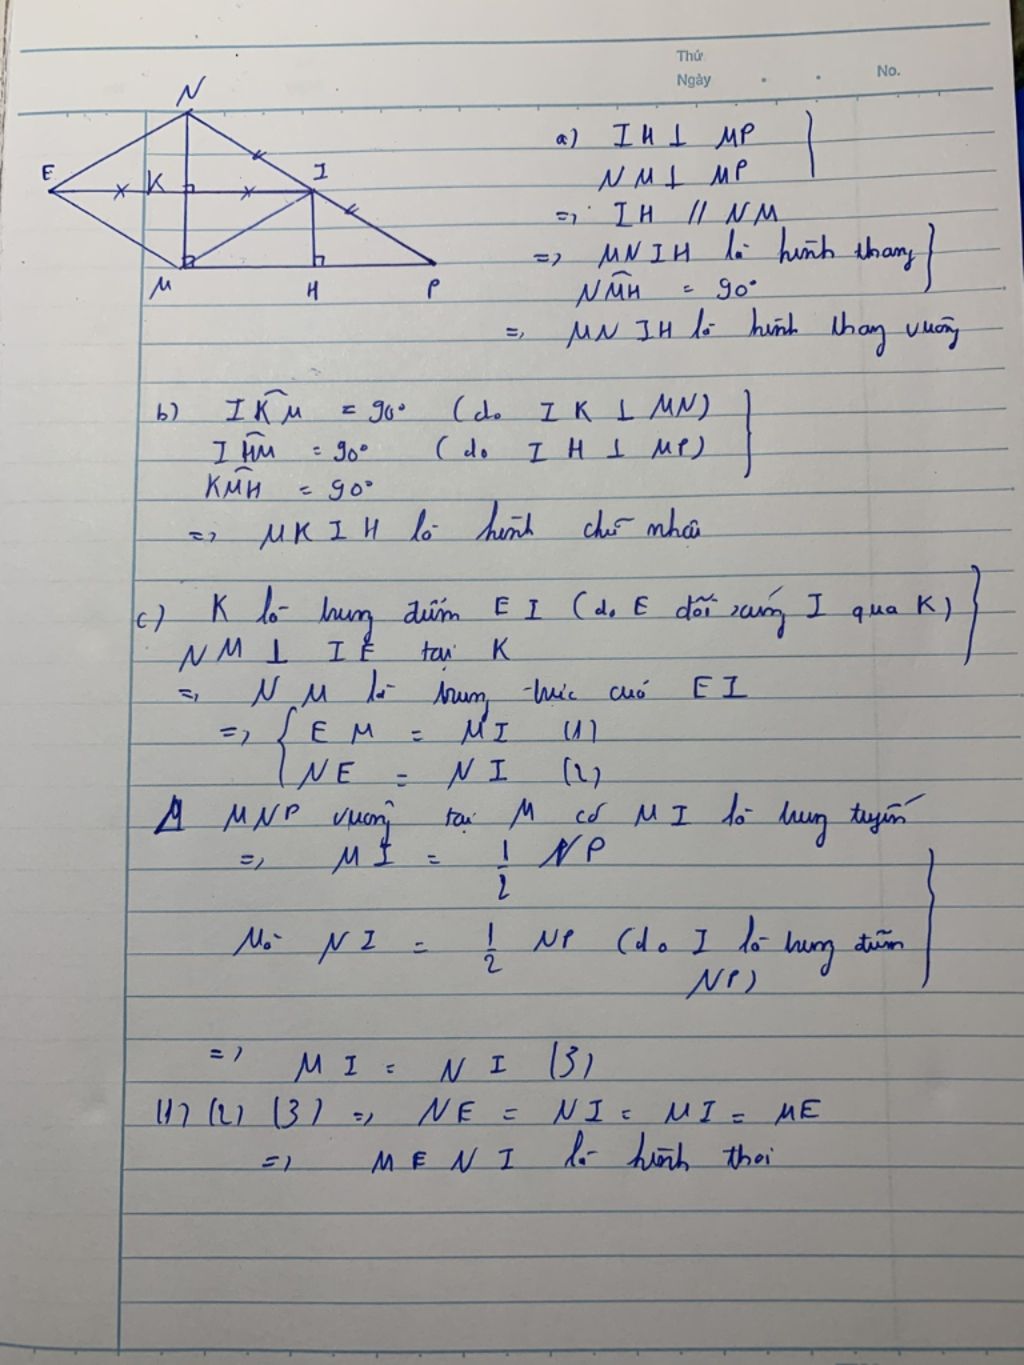 Thứ
Ngày
No.
N
E
K
I
M
H
P
a) IH ⊥ MP
NM ⊥ MP
=> IH // NM
=> MNIH là hình thang
NMH = 90°
=> MNIH là hình thang vuông
b) IKM = 90° (do IK ⊥ MN)
IHM = 90° (do IH ⊥ MP)
KMH = 90°
=> MKIH là hình chữ nhâ
c) K là trung điểm EI (do E đối xứng I qua K)
NM ⊥ IE tại K
=> NM là trung trực cuả EI
=> { EM = MI (1)
NE = NI (2)
Δ MNP vuông tại M có MI là trung tuyến
=> MI = 1/2 NP
Mà NI = 1/2 NP (do I là trung điểm
NP)
=> MI = NI (3)
(1) (2) (3) => NE = NI = MI = ME
=> MENI là hình thoi